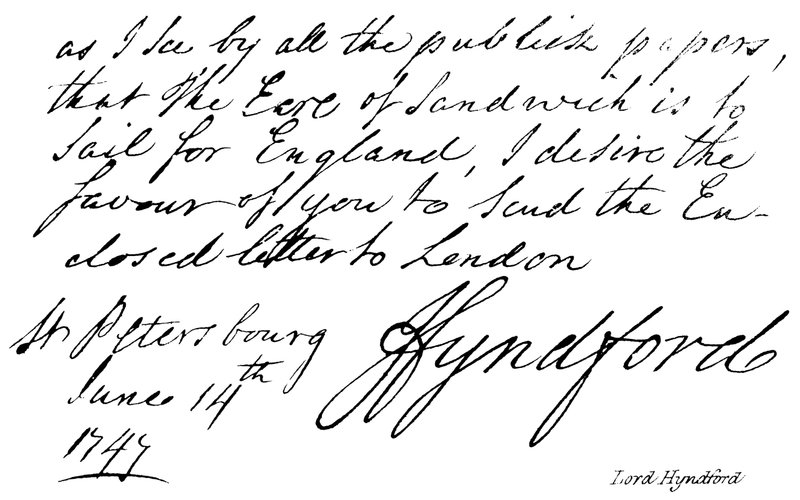 as I See by all the publick papers,
that The Earl of Sandwich is to
Sail for England, I desire the
favour of you to Send the En-
closed letter to London
St Petersbourg
June 14th
1747
Hyndford
Lord Hyndford